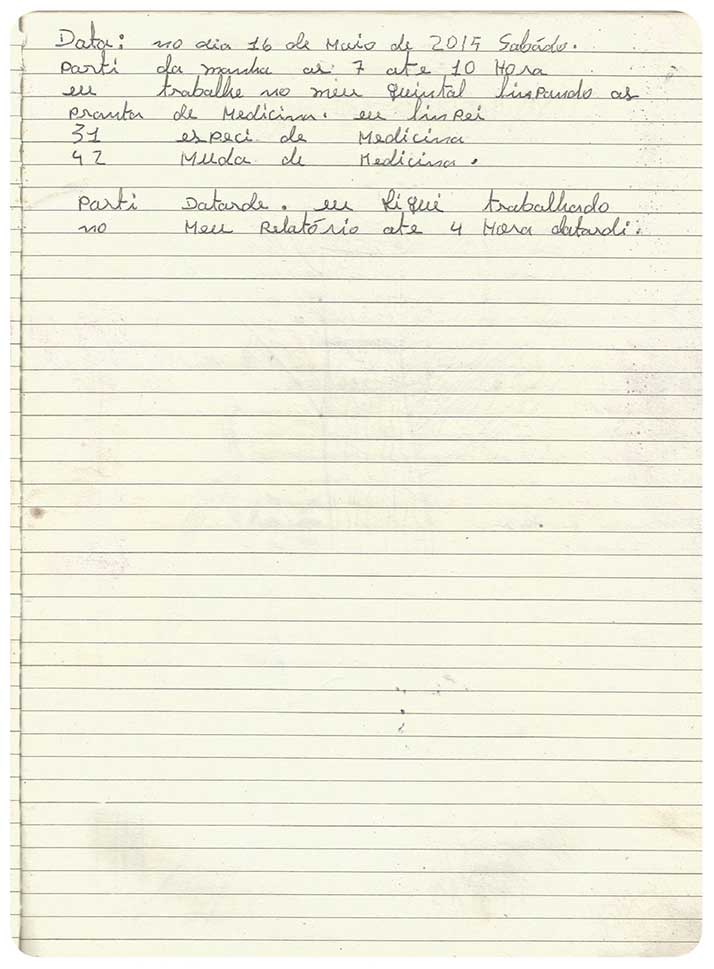 Data: no dia 16 de Maio de 2015 Sabádo.
parti da manha as 7 ate 10 Hora
eu trabalhe no meu quintal linpando as
pranta de Medicina. eu linpei
31 especi de Medicina
42 Muda de Medicina.
parti Datarde. eu fiqui trabalhado
no Meu Relatório ate 4 Hora datardi.